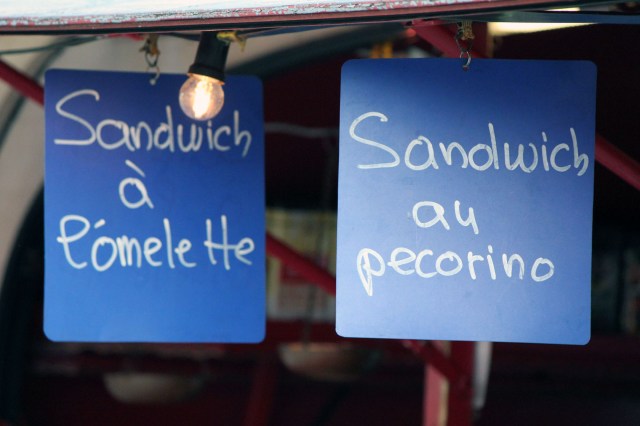 Sandwich
à
l'omelette
Sandwich
au
pecorino